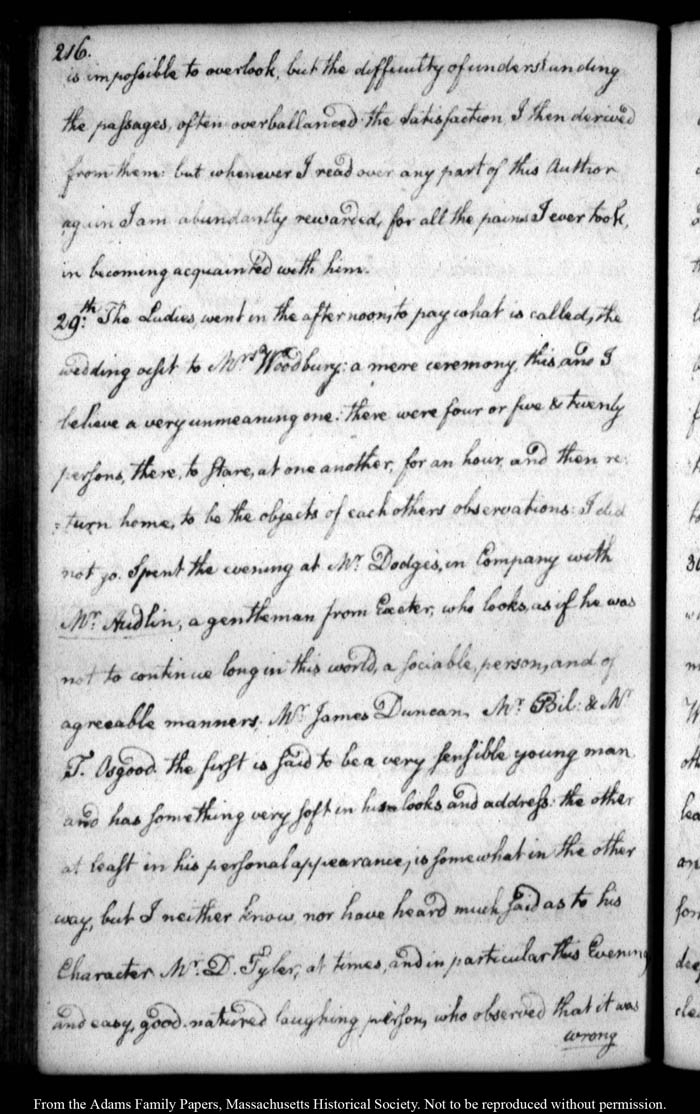 216.
is impossible to overlook, but the difficulty of understanding
the passages, often overballanced the satisfaction I then derived
from them: but whenever I read over any part of this Author
again I am abundantly rewarded, for all the pains I ever took,
in becoming acquainted with him.
29:th The Ladies, went in the afternoon, to pay what is called, the
wedding visit to Mrs Woodbury: a mere ceremony, this, and I
believe a very unmeaning one: there were four or five & twenty
persons, there, to stare, at one another, for an hour, and then re:
:turn home, to be the objects of each others observations: I did
not go. Spent the evening at Mr. Dodge's, in Company with
Mr. Audlin, a gentleman from Exeter, who looks, as if he was
not to continue long in this world, a sociable, person, and of
agreeable manners. Mr. James Duncan, Mr. Bil: & Mr
T. Osgood. the first is said to be a very sensible young man
and has something very soft in his looks and address: the other
at least in his personal appearance, is somewhat in the other
way, but I neither know, nor have heard much said as to his
Character Mr. D. Tyler, at times, and in particular this Evening
and easy, good-natured laughing person, who observed that it was
wrong
From the Adams Family Papers, Massachusetts Historical Society. Not to be reproduced without permission.